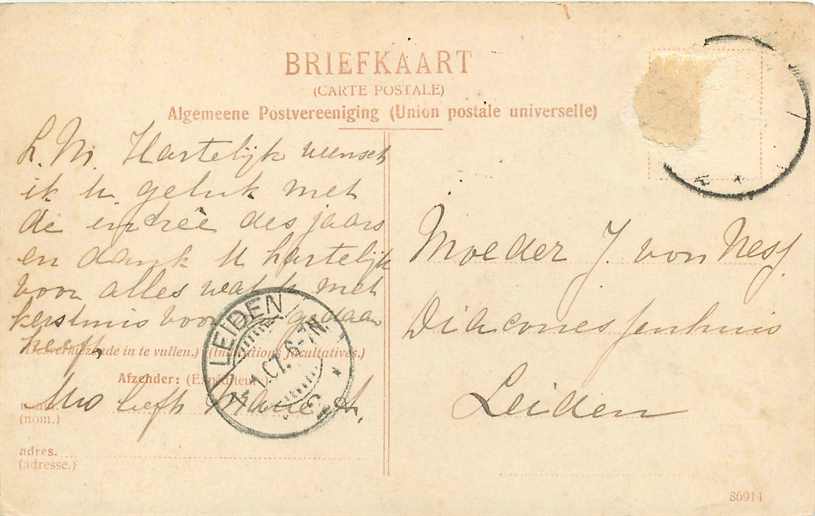 BRIEFKAART
(CARTE POSTALE)
Algemeene Postvereeniging (Union postale universelle)
L. M. Hartelijk wensch
ik U geluk met
de entrée des jaars
en dank U hartelijk
voor alles wat U met
kerstmis voor gedaan
heeft.
in te vullen.) (Indications facultatives.)
Afzender: (Expéditeur)
Uw liefh
(nom.)
adres.
(adresse.)
LEIDEN
1.07. 6-7N.
Moeder J. von Ness
Diaconessenhuis
Leiden
86914